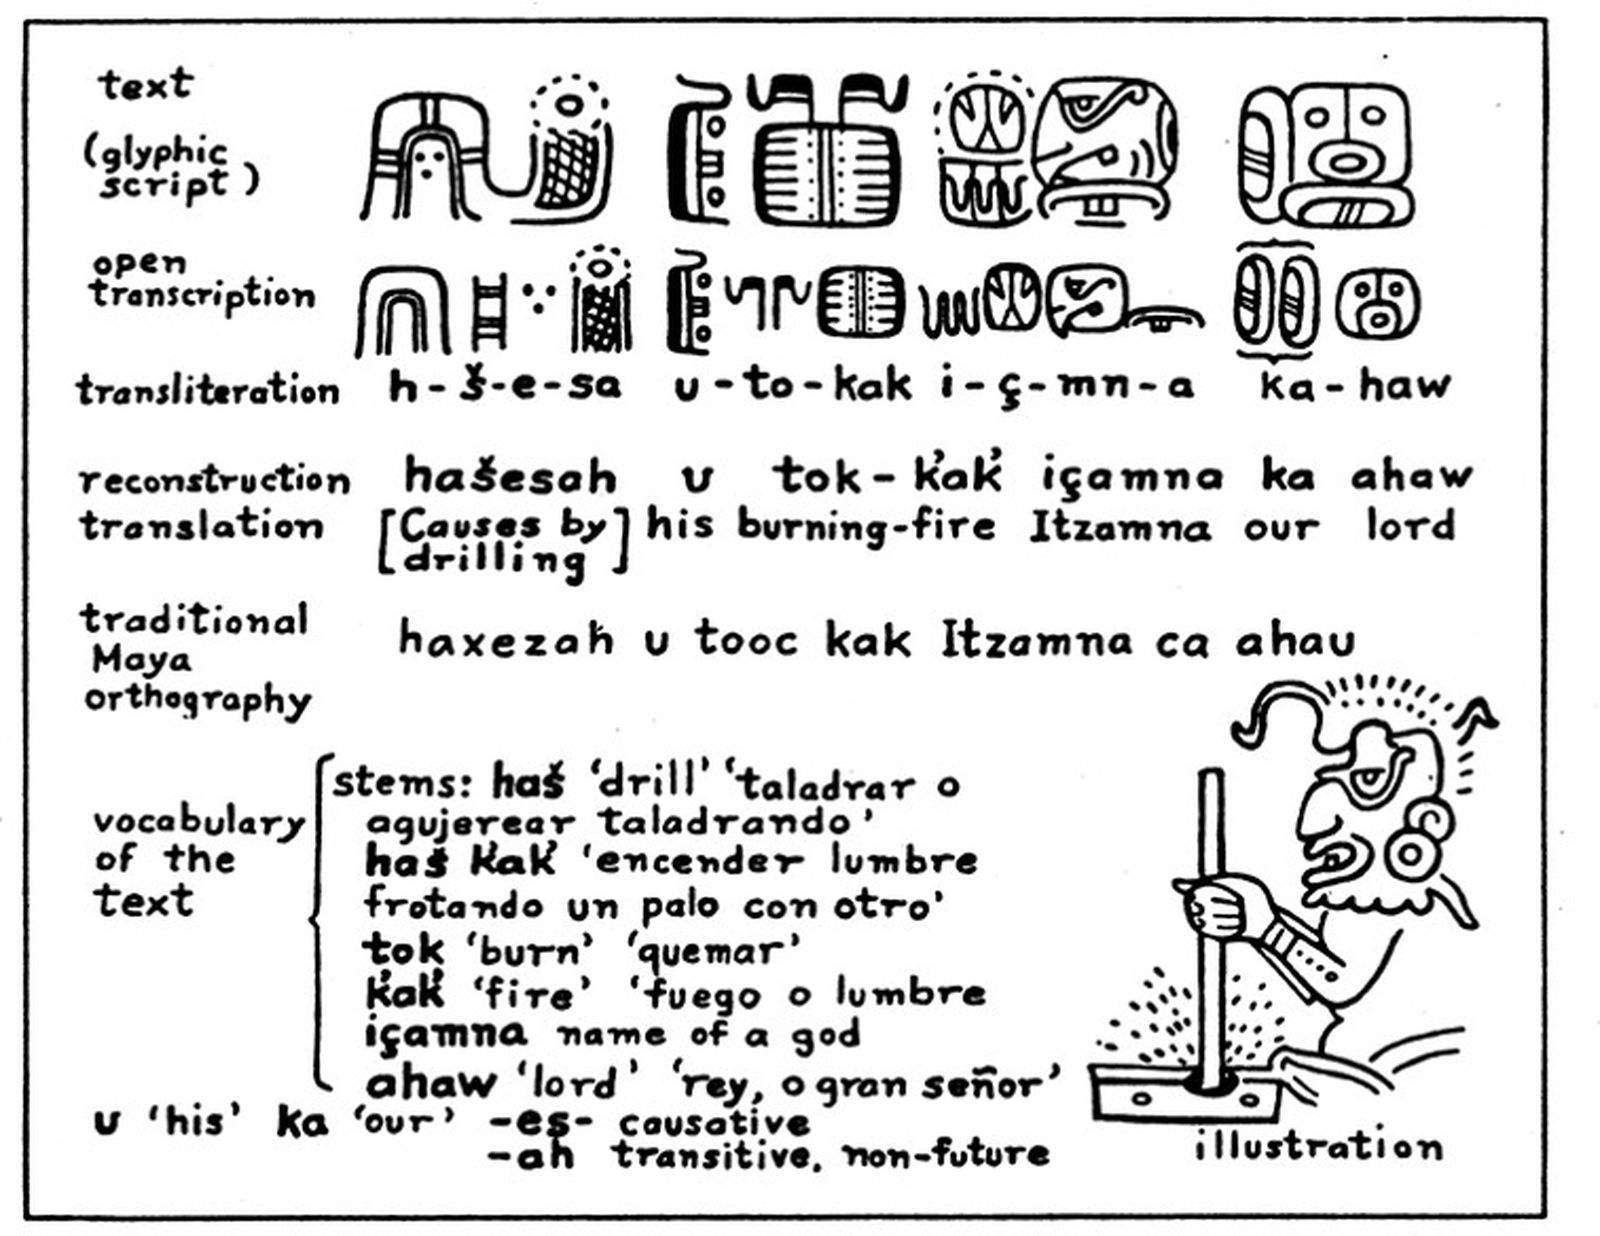 text
(glyphic
script)
open
transcription
transliteration h-š-e-sa u-to-kak i-ç-mn-a ka-haw
reconstruction hašesah u tok-k̓ak̓ içamna ka ahaw
translation [Causes by drilling] his burning-fire Itzamna our lord
traditional
Maya
orthography
haxezah u tooc kak Itzamna ca ahau
vocabulary
of the
text
stems: haš ‘drill’ ‘taladrar o
agujerear taladrando’
haš k̓ak̓ ‘encender lumbre
frotando un palo con otro’
tok ‘burn’ ‘quemar’
k̓ak̓ ‘fire’ ‘fuego o lumbre
içamna name of a god
ahaw ‘lord’ ‘rey, o gran señor’
u ‘his’ ka ‘our’ -es- causative
-ah transitive, non-future
illustration